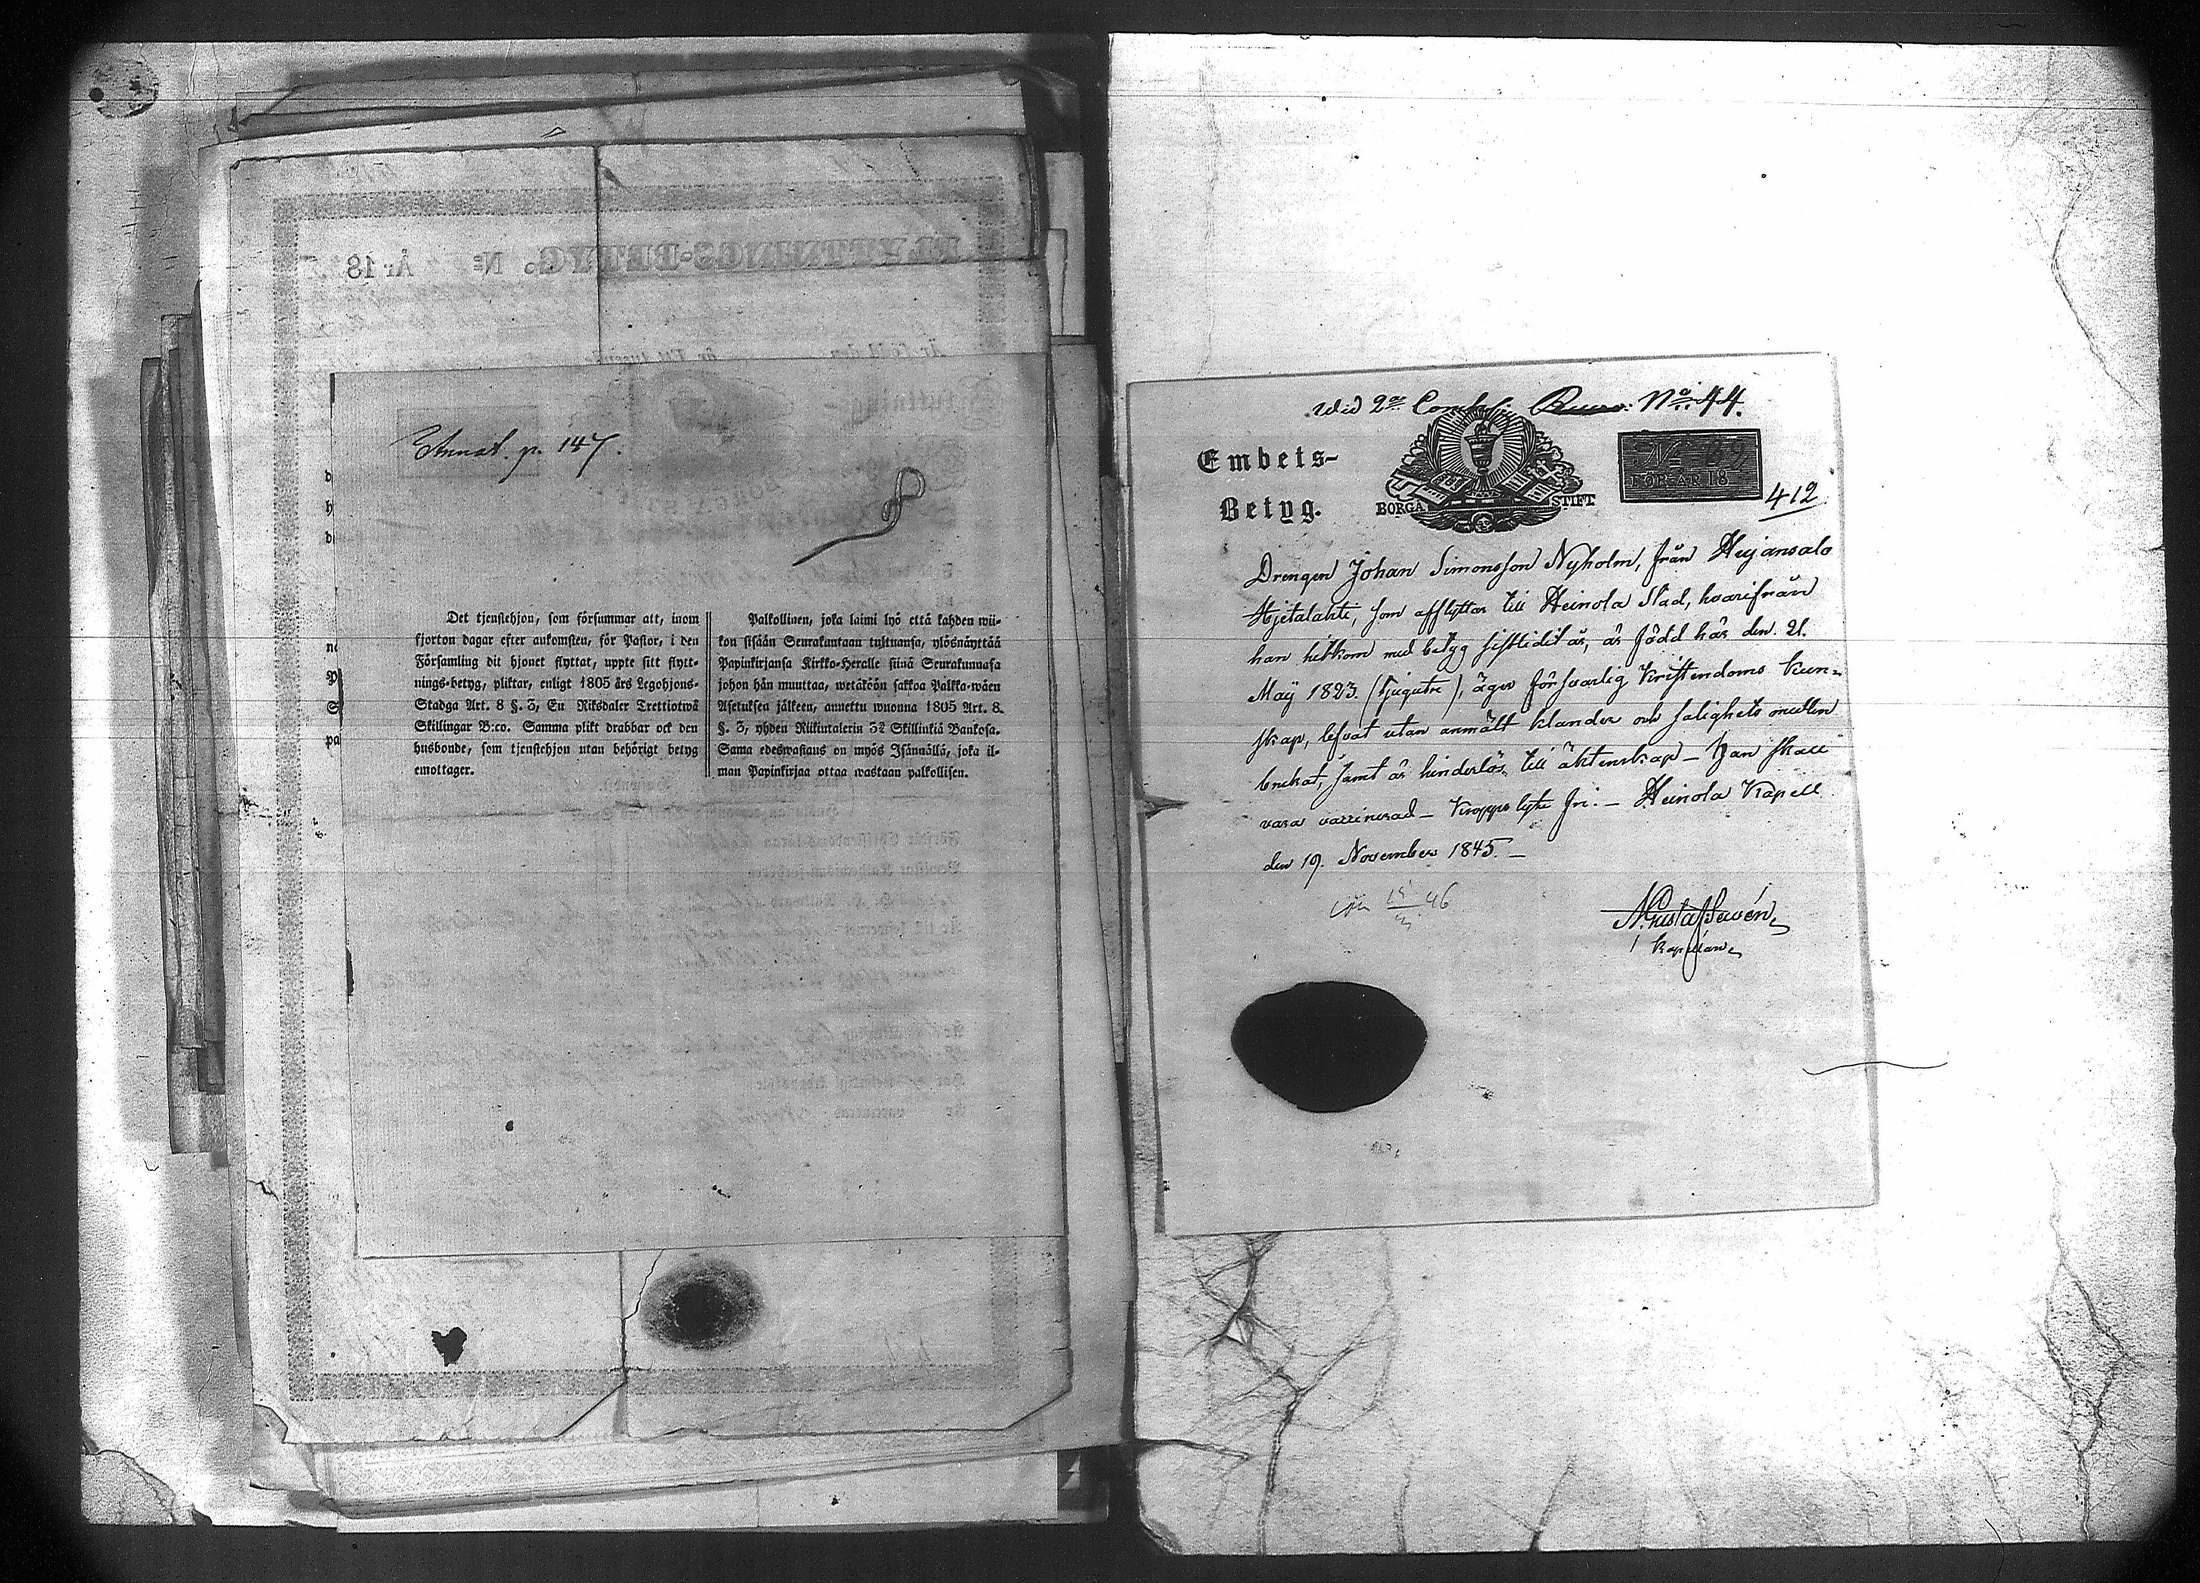 Annot. p. 147.
Det tjenstehjon, som försummar att, inom
fjorton dagar efter ankomsten, för Pastor, i den
Församling dit hjonet flyttat, uppte sitt flytt-
nings-betyg, pliktar, enligt 1805 års Legohjons-
Stadga Art. 8 §. 3, En Riksdaler Trettiotwå
Skillingar B:co. Samma plikt drabbar ock den
husbonde, som tjenstehjon utan behörigt betyg
emottager.
Palkollinen, joka laimi lyö että kahden wii-
kon sisään Seurakuntaan tultuansa, ylösnäyttää
Papinkirjansa Kirkko-Heralle siinä Seurakunnasa
johon hän muuttaa, wetäköön sakkoa Palkka-wäen
Asetuksen jälkeen, annettu wuonna 1805 Art. 8.
§. 3, yhden Riikintalerin 32 Skillinkiä Bankosa.
Sama edeswastaus on myös Isännällä, joka il-
man Papinkirjaa ottaa wastaan palkollisen.
FLYTTNINGS-BETYG. No År 18
Wid 2a No 44.
Embets-
Betyg.
BORGÅ STIFT
No
FÖR ÅR 18
412
Drengen Johan Simonsson Nyholm, från Heijansalo
Hjetalahti, som afflyttar till Heinola Stad, hvarifrån
han hitkom med betyg sistlidit år, är född här den 21.
Maij 1823. (tjugutre), äger försvarlig Kristendoms kun-
skap, lefvat utan anmält klander och salighets medlen
brukat, samt är hinderlös till äktenskap – Han skall
vara vaccinerad – Kropps lyte fri. – Heinola Kapell
den 19. November 1845. –
46
Kapellan